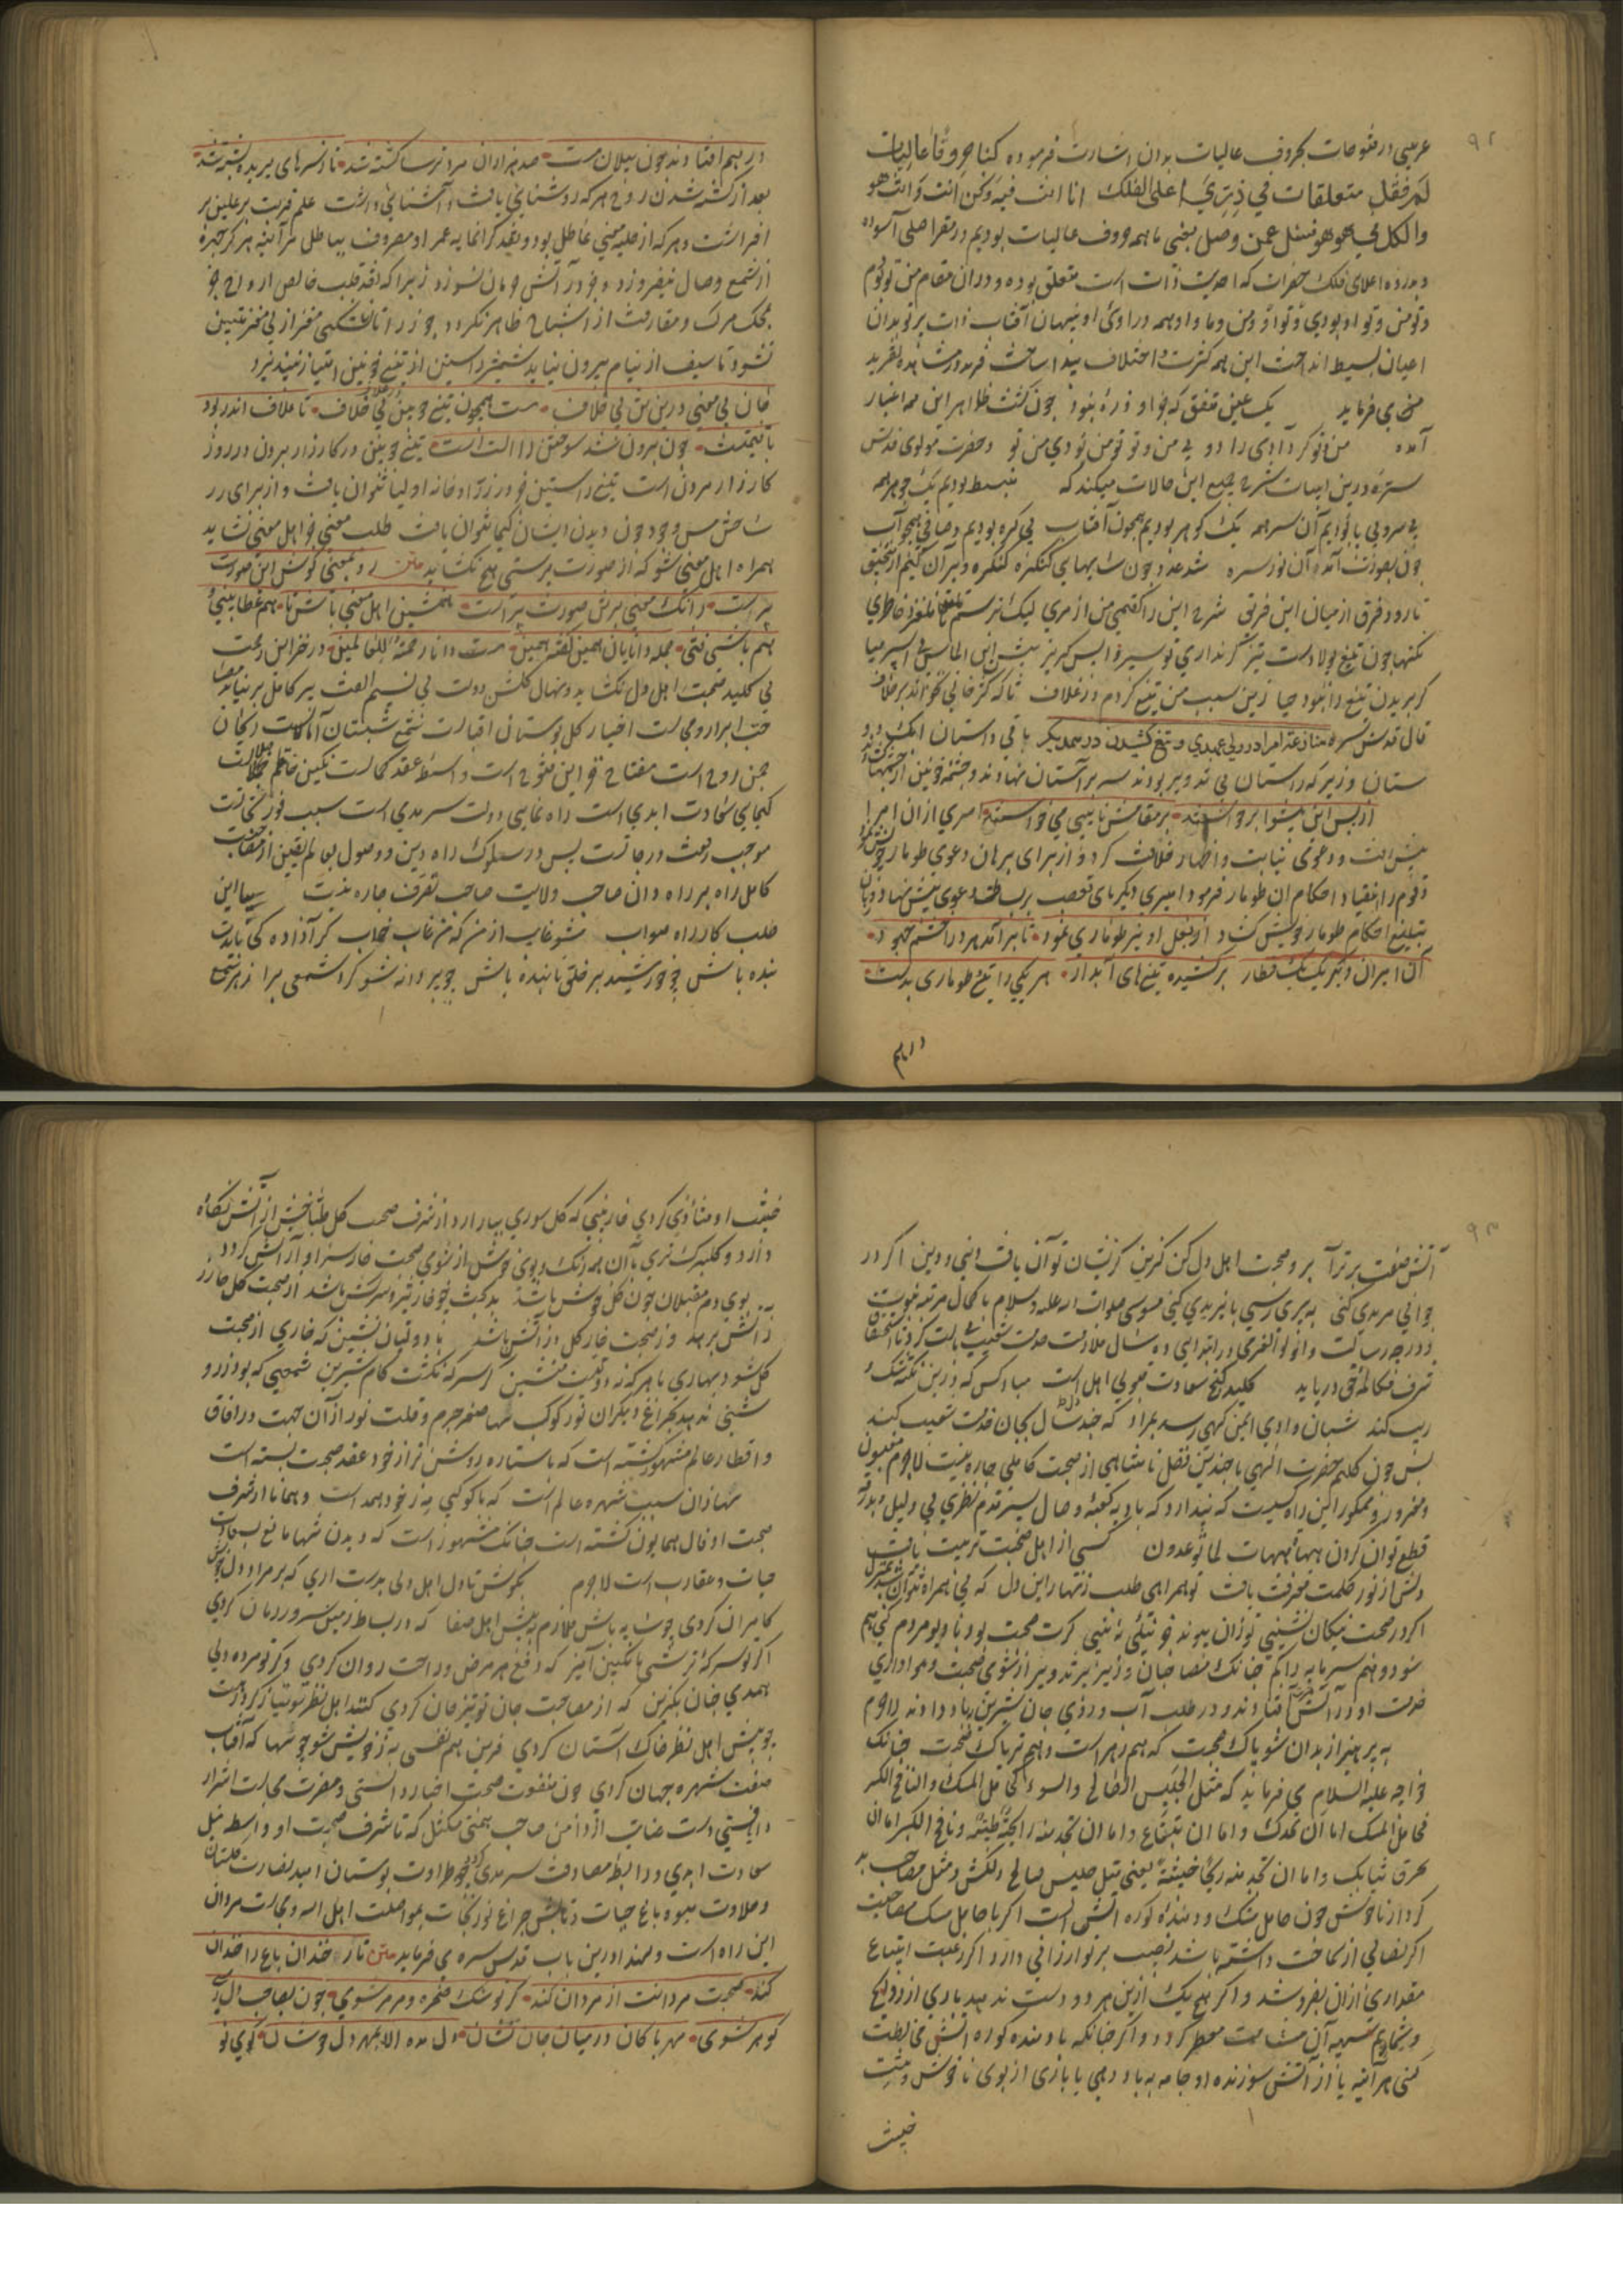 ۹۲
عربی در فتوحات بحروف عالیات بدان اشارت فرموده کنا حروفا عالیات
لم نقل متعلقات فی ذری اعلی القلل انا انت فیه ونحن انت وانت هو
والکل فی هو هو فسل عمن وصل یعنی ما همه حروف عالیات بودیم در مقر اصلی آسوده
و بذروه اعلای قلل حضرات که احدیت ذات است متعلق بوده و در آن مقام من تو بودم
و تو من و تو او بودی و او تو و من و ما و او همه در اوی او پنهان آفتاب ذات پرتو بدان
اعیان بسیط انداخت این همه کثرت و اختلاف پیدا ساخت
می فرماید یک عین متفق که جز او ذره نبود چون گشت ظاهر این همه اغیار
آمده من و تو کرد آدمی را دو بی من و تو تو من بودی من تو و حضرت مولوی قدس
سره درین ابیات شرح جمیع این حالات میکند که منبسط بودیم یک جوهر همه
بی سر و بی پا بدیم آن سر همه یک گوهر بودیم همچون آفتاب بی گره بودیم و صافی همچو آب
چون بصورت آمد آن نور سره شد عدد چون سایهای کنگره کنگره ویران کنید از منجنیق
تا رود فرق از میان این فریق شرح این را گفتمی من از مری لیک ترسم تا نلغزد خاطری
نکتها چون تیغ پولادست تیز گر نداری تو سپر واپس گریز پیش این الماس بی اسپر میا
کز بریدن تیغ را نبود حیا زین سبب من تیغ کردم در غلاف تا که کژخوانی نخواند بر خلاف
قال قدس سره منازعت امرا در ولی عهدی و تیغ کشیدن در همدیگر باقی داستان
ستان وزیر که راستان بی تدبیر بودند سر بر آستان نهادند و چشمه خونین از چشمها
از پس این پیشوا برخاستند بر مقامش نایبی میخواستند امیری از آن امرا
پیش رفت و دعوی نیابت و اظهار خلافت کرد و از برای برهان دعوی طومار خویش
و قوم را بانقیاد احکام آن طومار فرمود امیری دیگر پای تعصب بر بساط دعوی پیش نهاد و زبان
بتبلیغ احکام طومار خویش گشاد از بغل او نیز طوماری نمود تا برآمد هر دو را خشم جهود
آن امیران دگر یک یک قطار برکشیده تیغهای آبدار هر یکی را تیغ و طوماری بدست
درهم
در هم افتادند چون پیلان مست صد هزاران مرد ترسا کشته شد تا ز سرهای بریده پشته شد
بعد از کشته شدن روح هر که روشنایی یافت و آشنایی داشت علم قربت بر علیین بر
افراشت و هر که از حلیه معنی عاطل بود و نقد گرانمایه عمر او مصروف بباطل هر آینه هرگز چهره
از شمع وصال نیفروزد و جز در آتش حرمان نسوزد زیرا که نقد قلب خالص ارواح جز
بمحک مرگ و مفارقت از اشباح ظاهر نگردد جوز را تا نشکنی مغز از بی مغز متبین
نشود تا سیف از نیام بیرون نیاید شمشیر راستین از تیغ چوبین امتیاز نپذیرد
جان بی معنی درین تن بی خلاف هست همچون تیغ چوبین در غلاف تا غلاف اندر بود
با قیمتست چون برون شد سوختن را آلت است تیغ چوبین در کارزار مبر و در روز
کارزار مردن است تیغ راستین جز در زرادخانه اولیا نتوان یافت و از برای زر
ساختن مس وجود چون دیدن ایشان کیمیا نتوان یافت طلب معنی جز اهل معنی نشاید
همراه اهل معنی شو که از صورت پرستی هیچ نگشاید متن رو بمعنی کوش ای صورت
پرست زانک معنی بر تن صورت پرست همنشین اهل معنی باش تا هم عطا یابی
و هم باشی فتی جمله دانایان همین گفته همین هست دانا رحمة للعالمین در خزاین رحمت
بی کلید صحبت اهل دل نگشاید و نهال گلشن دولت بی نسیم الفت پیر کامل بر نیاید
صحبت ابرار و مجالست اخیار گل بوستان اقبالست شمع شبستان آمالست ریحان
چمن روح است مفتاح این فتوح است واسطه عقد کمالست نگین خاتم جلالست
کیمیای سعادت ابدی است راه نمایی دولت سرمدی است سبب فوز نجاتست
موجب رفعت درجاتست پس در سلوک راه دین و وصول بعالم یقین از صحبت
کامل راه بر راه دان صاحب ولایت صاحب تصرف چاره نیست بیا این
طلب کار راه صواب مشو غایب از من که من غایب خواب کر آزاده کی بایدت
بنده باش چو خورشید بر خلق تابنده باش چو پروانه شو گرد شمعی برآ
۹۳
آتش صفت برتر آ برو صحبت اهل دل کن گزین کزیشان توان یافت دنیی و دین اگر در
جوانی مریدی کنی به پیری رسی بایزیدی کنی موسی صلوات الله علیه و سلام با کمال مرتبه نبوت
و درجه رسالت و اولوالعزمی در ابتدا بی ده سال ملازمت خدمت شعیب بایست کرد تا استحقاق
شرف مکالمه حق دریابد کلید گنج سعادت قبول اهل دلست مباد کس که درین نکته شک و
ریب کند شبان وادی ایمن گهی رسد بمراد که چند سال بجان خدمت شعیب کند
پس چون کلیم حضرت الهی با چندین فضل نامتناهی از صحبت کاملی چاره نیست لاجرم مغبون
و مغرور و ممکور این راه کسیست که پندارد که بادیه کعبه وصال بسیر قدم نظری بی دلیل و بدرقه
قطع توان کردن هیهات هیهات لما توعدون کسی از اهل صحبت تربیت یافت
دلش از نور حکمت معرفت یافت تو همراهی طلب زنهار این دل که بی همراه نتوان شد بمنزل
اگر در صحبت نیکان نشینی توزان پیوند جز نیکی نبینی گرت صحبت بود با دیو مردم کنی هم
سود و هم سرمایه را گم چنانک مصاحبان وزیر پر تدبیر از شومی صحبت و هواداری
خدمت او در آتش حرص افتادند و در طلب آب و روی جان شیرین بباد دادند لاجرم
به پرهیز از بدان شو پاک صحبت که هم زهر است و هم تریاک صحبت چنانک
خواجه علیه السلام می فرماید که مثل الجلیس الصالح والسوء کحامل المسک والنافخ الکیر
فحامل المسک اما ان یحذیک واما ان تبتاع واما ان تجد منه رایحة طیبة ونافخ الکیر اما ان
یحرق ثیابک واما ان تجد منه ریحا خبیثة یعنی مثل جلیس صالح دلکش و مثل مصاحب بد
کردار ناخوش چون حامل مشک و دمنده کوره آتش است اگر با حامل مشک مصاحبت
اگر نصابی از کاخت داشته باشد نصیب بر تو ارزانی دارد و اگر رغبت ابتیاع
مقداری از آن بفروشد و اگر هیچ یک ازین هر دو دست ندهد باری از روایح
و شمایم آن مشامت معطر گردد و اگر چنانکه با دمنده کوره آتش مخالطت
کنی هر آینه یا از آتش سوزنده او جامه بباد دهی یا باری از بوی ناخوش و نتن
خبیث
خبیث او متأذی گردی خار نبینی که گل سوری بیارارد از شرف صحبت گل طباخش از آتش نگاه
دارد و گلبرگ تری با آن همه رنگ و بوی خوش از شومی صحبت خار سزاوار آتش گردد
بوی دم مقبلان چون گل خوش باشد بدبخت چو خار تیز و سرکش باشد از صحبت گل خار ز
آتش برهد وز صحبت خار گل در آتش باشد با دولتیان نشین که خاری از صحبت
گل شود بهاری با هر که نه دولتست منشین کز سرکه نگشت کام شیرین شمعی که بود ز رو
شنی دور ندهد بچراغ دیگران نور کوکب سها با صغر جرم و قلت نور از آن جهت در آفاق
و اقطار عالم مشهور گشته است که با ستاره روشن تر از خود عقد صحبت بسته است
سها زان سبب شهره عالم است که با کوکبی به ز خود همدم است و همانا از شرف
صحبت او فال همایون گشته است چنانک مشهور است که دیدن سها مانع لسع
حیات و عقارب است لاجرم بکوش تا دل اهل دلی بدست آری که بر مراد دل خویش
کامران گردی چو سایه باش ملازم به پیش اهل صفا که در بساط زمین سرور زمان گردی
اگر تو سرکه ترشی با انگبین آمیز که دفع هر مرض و راحت روان گردی وگر تو مرده دلی
همدمی چنان بگزین که از مصاحبت جان تو نیز جان گردی
چو پیش اهل نظر خاک آستان گردی قرین هم نفسی به ز خویش شو چو سها که آفتاب
صفت شهره جهان گردی چون منفعت صحبت اخیار دانستی و مضرت مجالست اشرار
دانستی دست عنایت از دامن صاحب همتی مگسل که تا شرف صحبت او واسطه نیل
سعادت ابدی و رابطه مصادقت سرمدی گردد چو طراوت بوستان امید نضارت گلستان
و حلاوت میوه باغ حیات و تابش چراغ نور نجات بمواصلت اهل الله و مجالست مردان
این راه است و لهذا درین باب قدس سره می فرماید متن نار خندان باغ را خندان
کند صحبت مردانت از مردان کند گر تو سنگ صخره و مرمر شوی چون بصاحب دل رسی
گوهر شوی مهر پاکان در میان جان نشان دل مده الا بمهر دل خوشان کوی نو